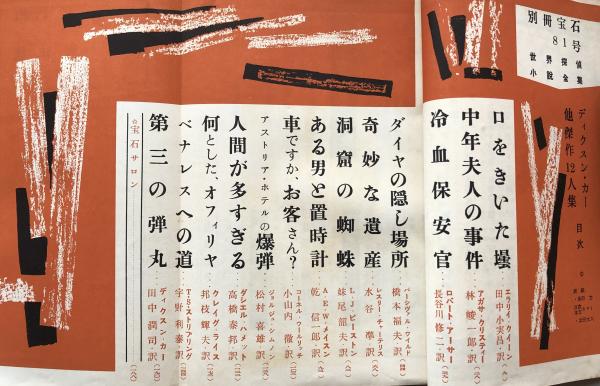 別冊宝石
81号
世界探偵
小説全集
ディクスン・カー
他傑作12人集
目次
口をきいた壜
エラリイ・クイーン
田中小実昌訳
中年夫人の事件
アガサ・クリスティー
林 峻一郎訳
冷血保安官
ロバート・アーサー
長谷川修二訳
ダイヤの隠し場所
パーシヴァル・ワイルド
橋本福夫訳
奇妙な遺産
レスリー・チャーテリス
水谷 準訳
洞窟の蜘蛛
L・J・ビーストン
妹尾韶夫訳
ある男と置時計
A・E・W・メイスン
乾 信一郎訳
車ですか、お客さん?
コーネル・ウールリッチ
小山内 徹訳
アストリア・ホテルの爆弾
ジョルジュ・シムノン
松村喜雄訳
人間が多すぎる
ダシエル・ハメット
高橋泰邦訳
何とした、オフィリヤ
クレイグ・ライス
邦枝輝夫訳
ベナレスへの道
T・S・ストリブリング
宇野利泰訳
第三の弾丸
ディクスン・カー
田中潤司訳
☆宝石サロン